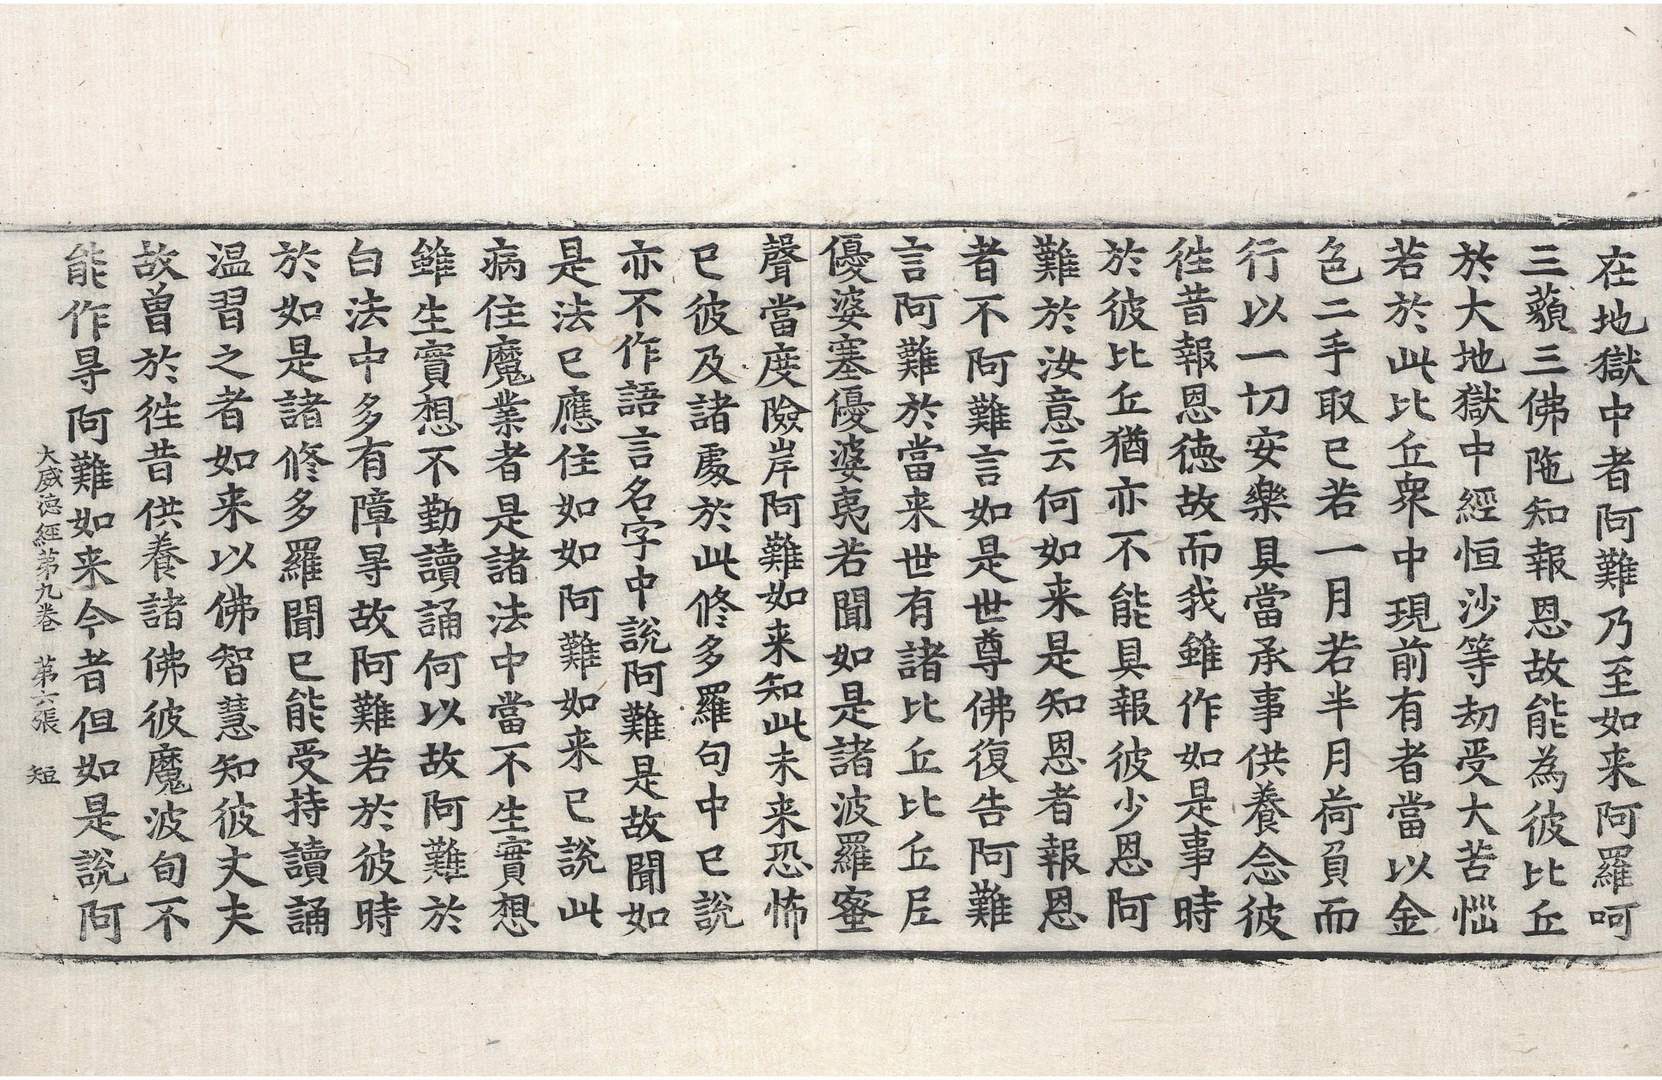 在地獄中者阿難乃至如来阿羅呵
三藐三佛陁知報恩故能為彼比丘
於大地獄中經恒沙等劫受大苦惱
若於此比丘衆中現前有者當以金
色二手取已若一月若半月荷負而
行以一切安樂具當承事供養念彼
徃昔報恩徳故而我雖作如是事時
於彼比丘猶亦不能具報彼少恩阿
難於汝意云何如来是知恩者報恩
者不阿難言如是世尊佛復告阿難
言阿難於當来世有諸比丘比丘尼
優婆塞優婆夷若聞如是諸波羅蜜
聲當度險岸阿難如来知此未来恐怖
已彼及諸處於此修多羅句中已說
亦不作語言名字中說阿難是故聞如
是法已應住如如阿難如来已說此
病住魔業者是諸法中當不生實想
雖生實想不勤讀誦何以故阿難於
白法中多有障㝵故阿難若於彼時
於如是諸修多羅聞已能受持讀誦
温習之者如来以佛智慧知彼丈夫
故曽於徃昔供養諸佛彼魔波旬不
能作㝵阿難如来今者但如是說阿
大威徳經第九卷 第六張 短